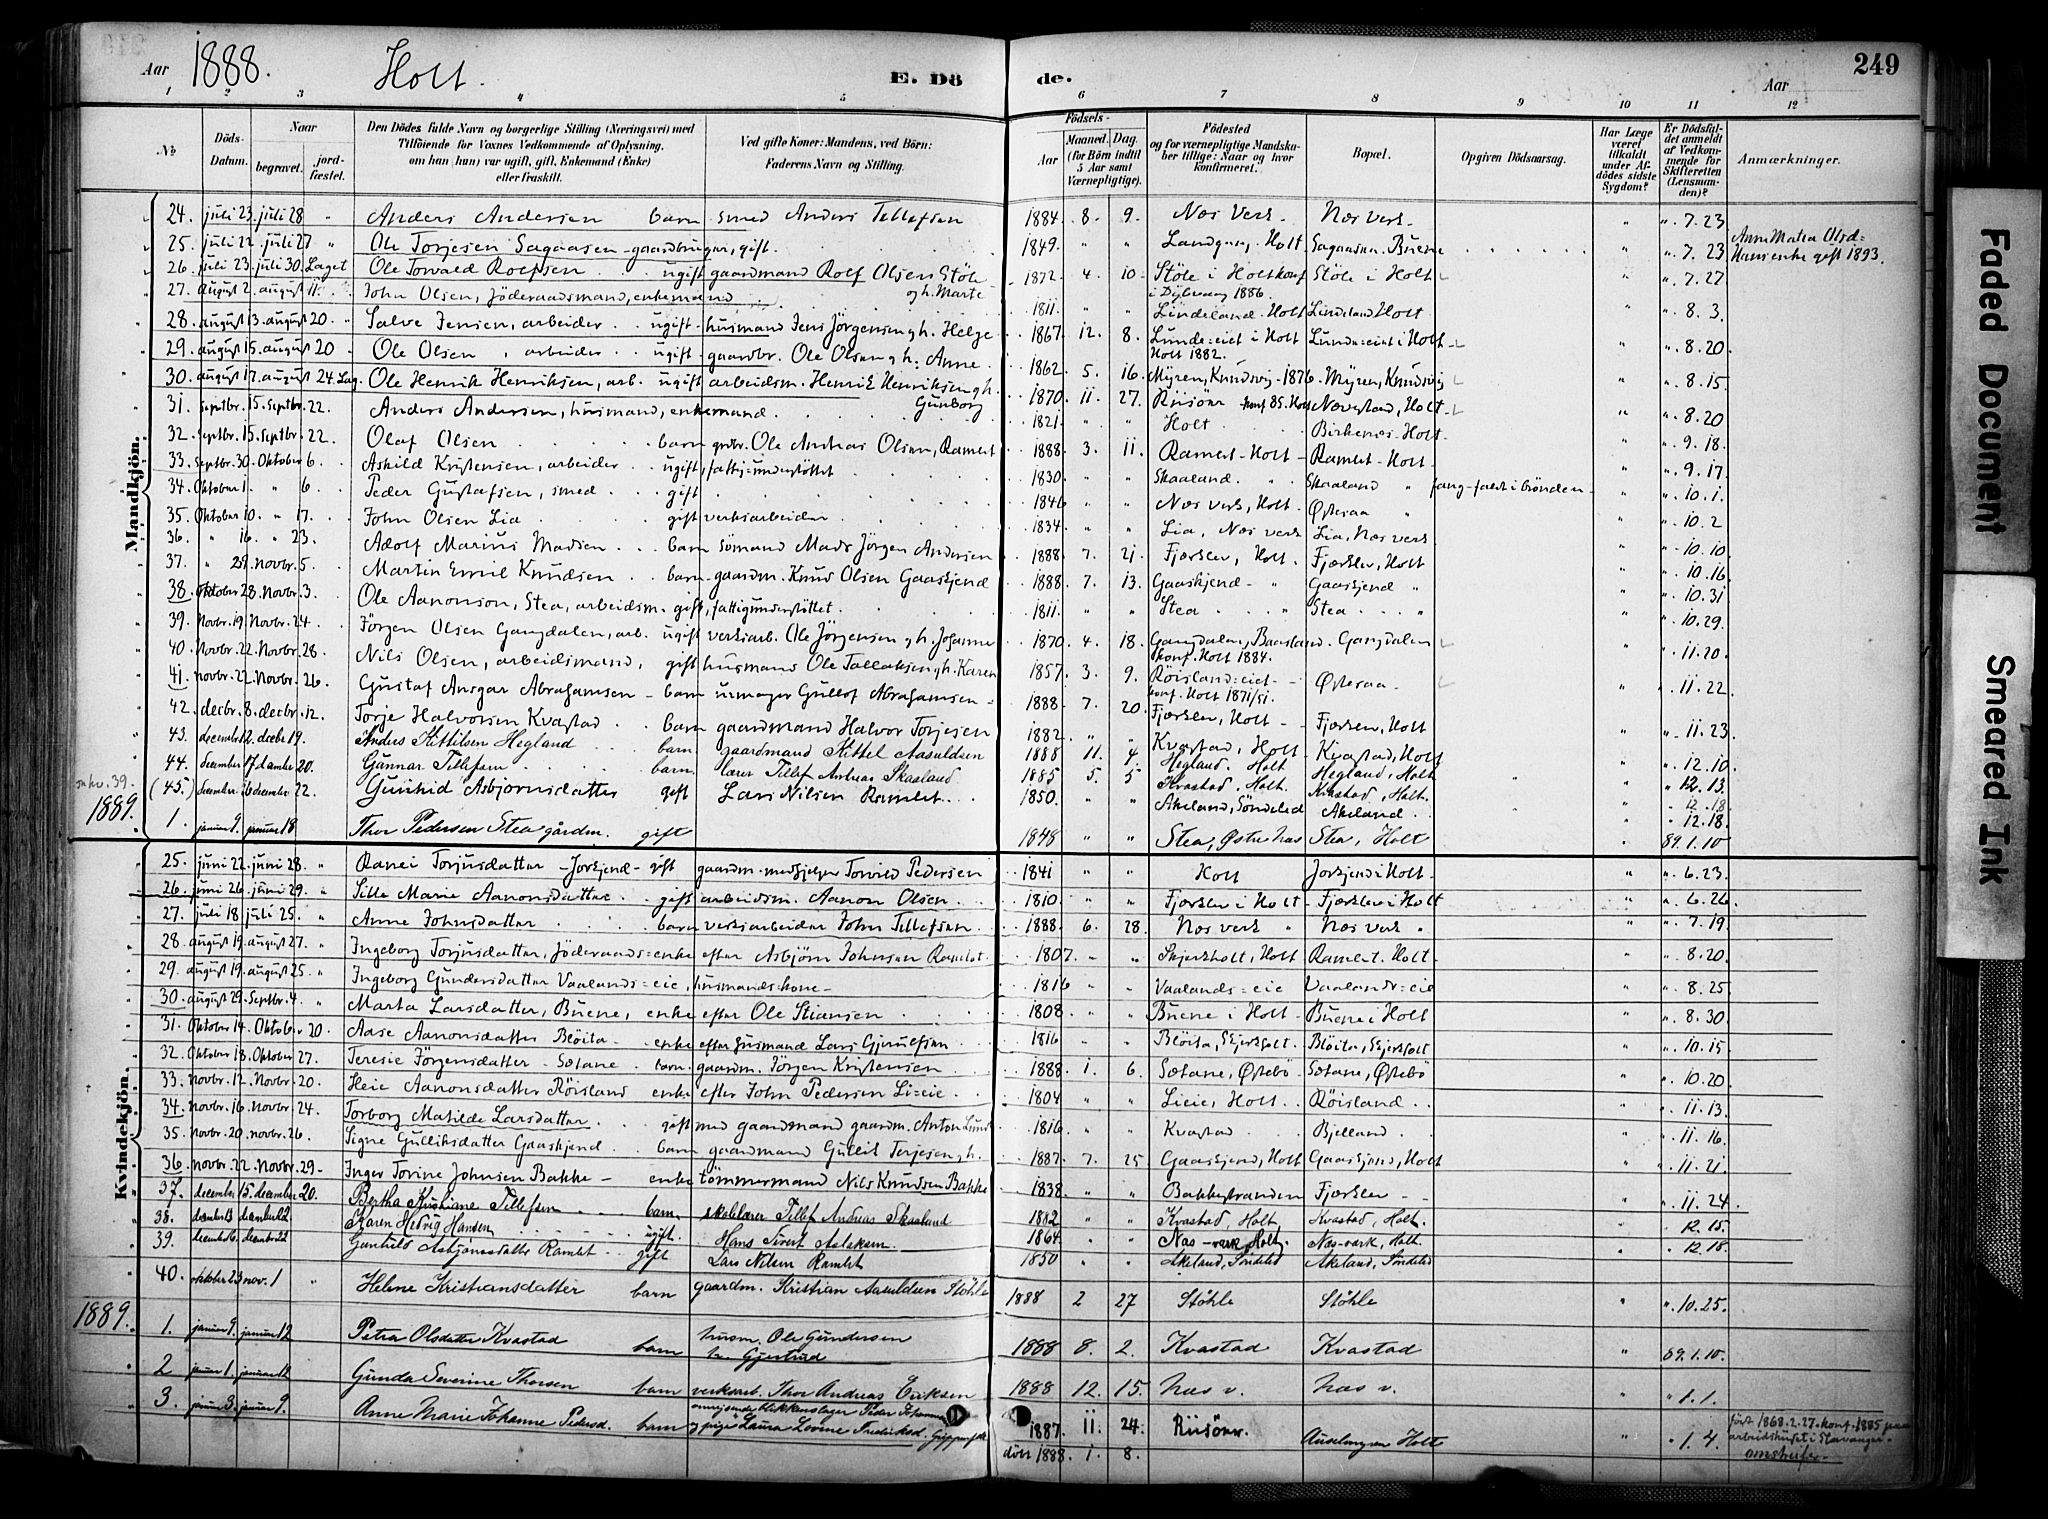 Aar 1888. Holt. E. Dö de. Aar 249
1 2 3 4 5 6 7 8 9 10 11 12
No. Döds-Datum. Naar begravet. jordfæstet. Den Dödes fulde Navn og borgerlige Stilling (Næringsvei) med Tilföiende for Voxnes Vedkommende af Oplysning, om han (hun) var ugift, gift, Enkemand (Enke) eller fraskilt. Ved gifte Koner: Mandens, ved Börn: Faderens Navn og Stilling. Födsels- Aar Maaned. Dag. (for Börn indtil 5 Aar samt Værnepligtige). Födested og for værnepligtige Mandskaber tillige: Naar og hvor konfirmeret. Bopæl. Opgiven Dödsaarsag. Har Læge været tilkaldt under Afdödes sidste Sygdom? Er Dödsfaldet anmeldt af Vedkommende for Skifteretten (Lensmanden)? Anmærkninger.
Mandkjön.
24. juli 23. juli 28 " Anders Andersen barn smed Anders Tellefsen 1884 8. 9. Næs verk Næs verk " ". 7. 23
25. juli 22. juli 27 " Ole Torjesen Sagaasen gaardbruger, gift. 1849. " " Landgaar, Holt Sagaasen. Buene " 7. 23 Anne Matea Olsd=
Hans enke gift 1893.
26. juli 23. juli 30. Laget Ole Torvald Rolfsen ugift gaardmand Rolf Olsen Stöle og h. Marte 1872. 4. 10. Stöle i Holt konf. i Dybvaag 1886. Stöle i Holt " ". 7. 27
27. august 2. august 11. John Olsen, föderaadsmand, enkemand 1811. " " Lindeland Holt Lindeland Holt " ". 8. 3.
28. august 13. august 20. Salve Jensen, arbeider ugift husmand Jens Jörgensen g h. Helge 1867 12. 8. Lunde=eiet i Holt Holt 1882. Lunde=eiet i Holt " ". 8. 20
29. august 15. august 20 Ole Olsen, arbeider ugift gaardbr. Ole Olsen g h: Anne 1862. 5. 16. Myren, Knudsvig 1876. Myren, Knudsvig " ". 8. 15.
30. august 17. august 24. Lag. Ole Henrik Henriksen, arb. ugift arbeidsm. Henrik Henriksen g h. Gunborg 1870 11. 27. Riisöer konf 85. Holt Navestad, Holt " ". 8. 20
31. septbr. 15. septbr. 22. Anders Andersen, husmand, enkemand. 1821. " " Holt Birkenes Holt " ". 9. 18.
32. septbr. 15. septbr. 22. Olaf Olsen barn grdbr. Ole Andreas Olsen, Ramlet 1888 3. 11. Ramlet Holt Ramlet Holt " ". 9. 17.
33. septbr. 30. Oktober 6. Askild Kristensen, arbeider ugift, fattigunderstöttet 1830. " " Skaaland. " Skaaland " ". 10. 1.
34. Oktober 1. " 6. Peder Gustafsen, smed gift 1846 " " Næs verk, Holt. Østeraa " ". 10. 2
35. Oktober 10. " 17. John Olsen Lia gift verksarbeider 1834 " " Lia, Næs verk Lia, Næs verk " ". 10. 10
36. " 16. " 23. Adolf Marius Madsen barn sömand Mads Jörgen Andersen 1888 7. 21. Fjærslev, Holt. Fjærslev, Holt " ". 10. 16
37. " 29. Novbr. 5. Martin Emil Knudsen barn gaardm. Knud Olsen Gaaskjend 1888 7. 13. Gaaskjend " Gaaskjend " " ". 10. 31
38. Oktober 28. Novbr. 3. Ole Aanonson, Stea, arbeidsm. gift, fattigunderstöttet. 1811. " " Stea " Stea " " ". 10. 29.
39. Novbr. 19. Novbr. 24. Jörgen Olsen Gangdalen, arb. ugift verksarb. Ole Jörgensen g h. Johanne 1870 4. 18. Gangdalen, Baasland. konf. Holt 1884. Gangdalen " ". 11. 20.
40. Novbr. 22. Novbr. 28. Nils Olsen, arbeidsmand, gift husmand Ole Tallaksen g h. Karen 1857. 3. 9. Röisland=eiet konf. Holt 1871/51. Østeraa " ". 11. 22.
41. novbr. 22. novbr. 26. Gustaf Ansgar Abrahamsen barn urmager Gullof Abrahamsen 1888. 7. 20. Fjærslev, Holt Fjærslev, Holt " ". 11. 23
42. decbr. 8. decbr. 12. Torje Halvorsen Kvastad barn gaardmand Halvor Torjesen 1882. " " Kvastad, Holt Kvastad, Holt " ". 12. 10.
43. december 12. decbr 19. Anders Kittilsen Hegland barn gaardmand Kittel Aasuldsen 1888 11. 4. Hegland, Holt Hegland, Holt " ". 12. 13.
44. december 17 december 20. Gunnar Tellefsen barn lærer Tellef Andreas Skaaland 1885 5. 5 Kvastad, Holt. Kvastad, Holt. " ". 12. 18
se kv. 39. (45.) december 16 december 22. Gunhild Asbjørnsdatter gift Lars Nilsen Ramlet 1850. " " Akeland, Söndeled Akeland. " ". 12. 18.
1889. 1. januar 9. januar 18 Thor Pedersen Stea gården. gift 1848 " " Stea, Østre næs Stea, Holt " 89. 1. 10
Kvindekjön.
25. juni 22. juni 28. " Ranei Torjusdatter Jorkjend gift gaardm. medhjelper Torvild Pedersen 1841 " " Holt Jorkjend i Holt " ". 6. 23.
26. juni 26. juni 29. " Sille Marie Aanonsdatter gift arbeidsm. Aanon Olsen 1810. " " Fjærslev i Holt Fjærslev i Holt " ". 6. 26.
27. juli 18 juli 25. " Anne Johnsdatter barn verksarbeider John Tellefsen 1888. 6. 28. Næs verk " Næs verk " " ". 7. 19.
28. august 19. august 27. " Ingeborg Torjusdatter, föderaads=enke efter Asbjörn Johnsen Ramlet 1807. " " Skjerkholt, Holt Ramlet. Holt. " ". 8. 20
29. august 19. august 25. " Ingeborg Gundersdatter Vaalands=eie, husmands kone 1816 " " Vaalands=eie Vaalands=eie " ". 8. 25.
30. august 29. Septbr. 4. " Marta Larsdatter, Buene, enke efter Ole Stiansen 1808 " " Buene i Holt Buene i Holt " ". 8. 30
31. Oktober 14. Oktober 20. Aase Aanonsdatter Blöita enke efter husmand Lars Gjerulfsen 1816 " " Blöita, Skjerkholt. Blöita, Skjerkholt " ". 10. 15
32. Oktober 18. Oktober 27. Teresie Jörgensdatter Sætane. barn gaardm. Jörgen Kristensen 1888. 1. 6. Sætane, Østebö Sætane, Østebö " ". 10. 20
33. Novbr. 12. Novbr. 20. Heie Aanonsdatter Röisland enke efter John Pedersen Li=eie 1804 " " Lieie, Holt Röisland " ". 11. 13.
34. novbr. 16. Novbr. 24. Torborg Matilde Larsdatter gift med gaardmand gaardm. Anton Lund 1816. " " Kvastad Bjelland. " ". 11. 16.
35. novbr. 20. novbr. 26. Signe Gulliksdatter Gaaskjend barn gaardmand Gullik Terjesen g h. 1887. 7. 25 Gaaskjend, Holt Gaaskjend, Holt " ". 11. 21.
36. novbr. 22. Novbr. 29. Inger Torine Johnsen Bakke enke tömmermand Nils Knudsen Bakke 1838. " " Bakkestranden Fjærslev " ". 11. 24
37. december 15. december 20. Bertha Kristiane Tellefsen barn skolelærer Tellef Andreas Skaaland 1882 " " Kvastad, Holt Kvastad, Holt. " 12. 15.
38. decembr 13 december 22. Karen Hedvig Hansen ugift. Hans Sivert Aslaksen. 1864. " " Næs-værk, Holt. Næs-værk, Holt. " ". 12. 18.
39. decembr 16. decembr 22 Gunhild Asbjørnsdatter Ramlet gift Lars Nilsen Ramlet 1850 " " Akeland, Söndeled Akeland, Söndeled
40. oktober 23 nov. 1 " Helene Kristiansdatter barn gaardm. Kristian Aasuldsen Stöhle 1888 2 27 Stöhle Stöhle " ". 10. 25.
1889. 1. januar 9. januar 12 Petra Olsdatter Kvastad barn husm. Ole Gundersen
Gjertrud 1888 8. 2. Kvastad Kvastad " 89. 1. 10.
2 januar 1. januar 12 Gunda Severine Thorsen barn verksarb. Thor Andreas Eriksen 1888 12. 15. næs v. næs v. " ". 1. 1.
3. januar 3. januar 9. Anne Marie Johanne Pedersd. barn omreisende blikkenslager Peder Johannes
g pige Laura Lovine Fredriksd. 1887. 11. 24. Riisöer. Holt " 1. 4. født 1868. 2. 27. konf. 1885 paa
arbeidshuset i Stavanger.
omstreifer.
döbt 1888. 1. 8.
Faded Document
Smeared Ink